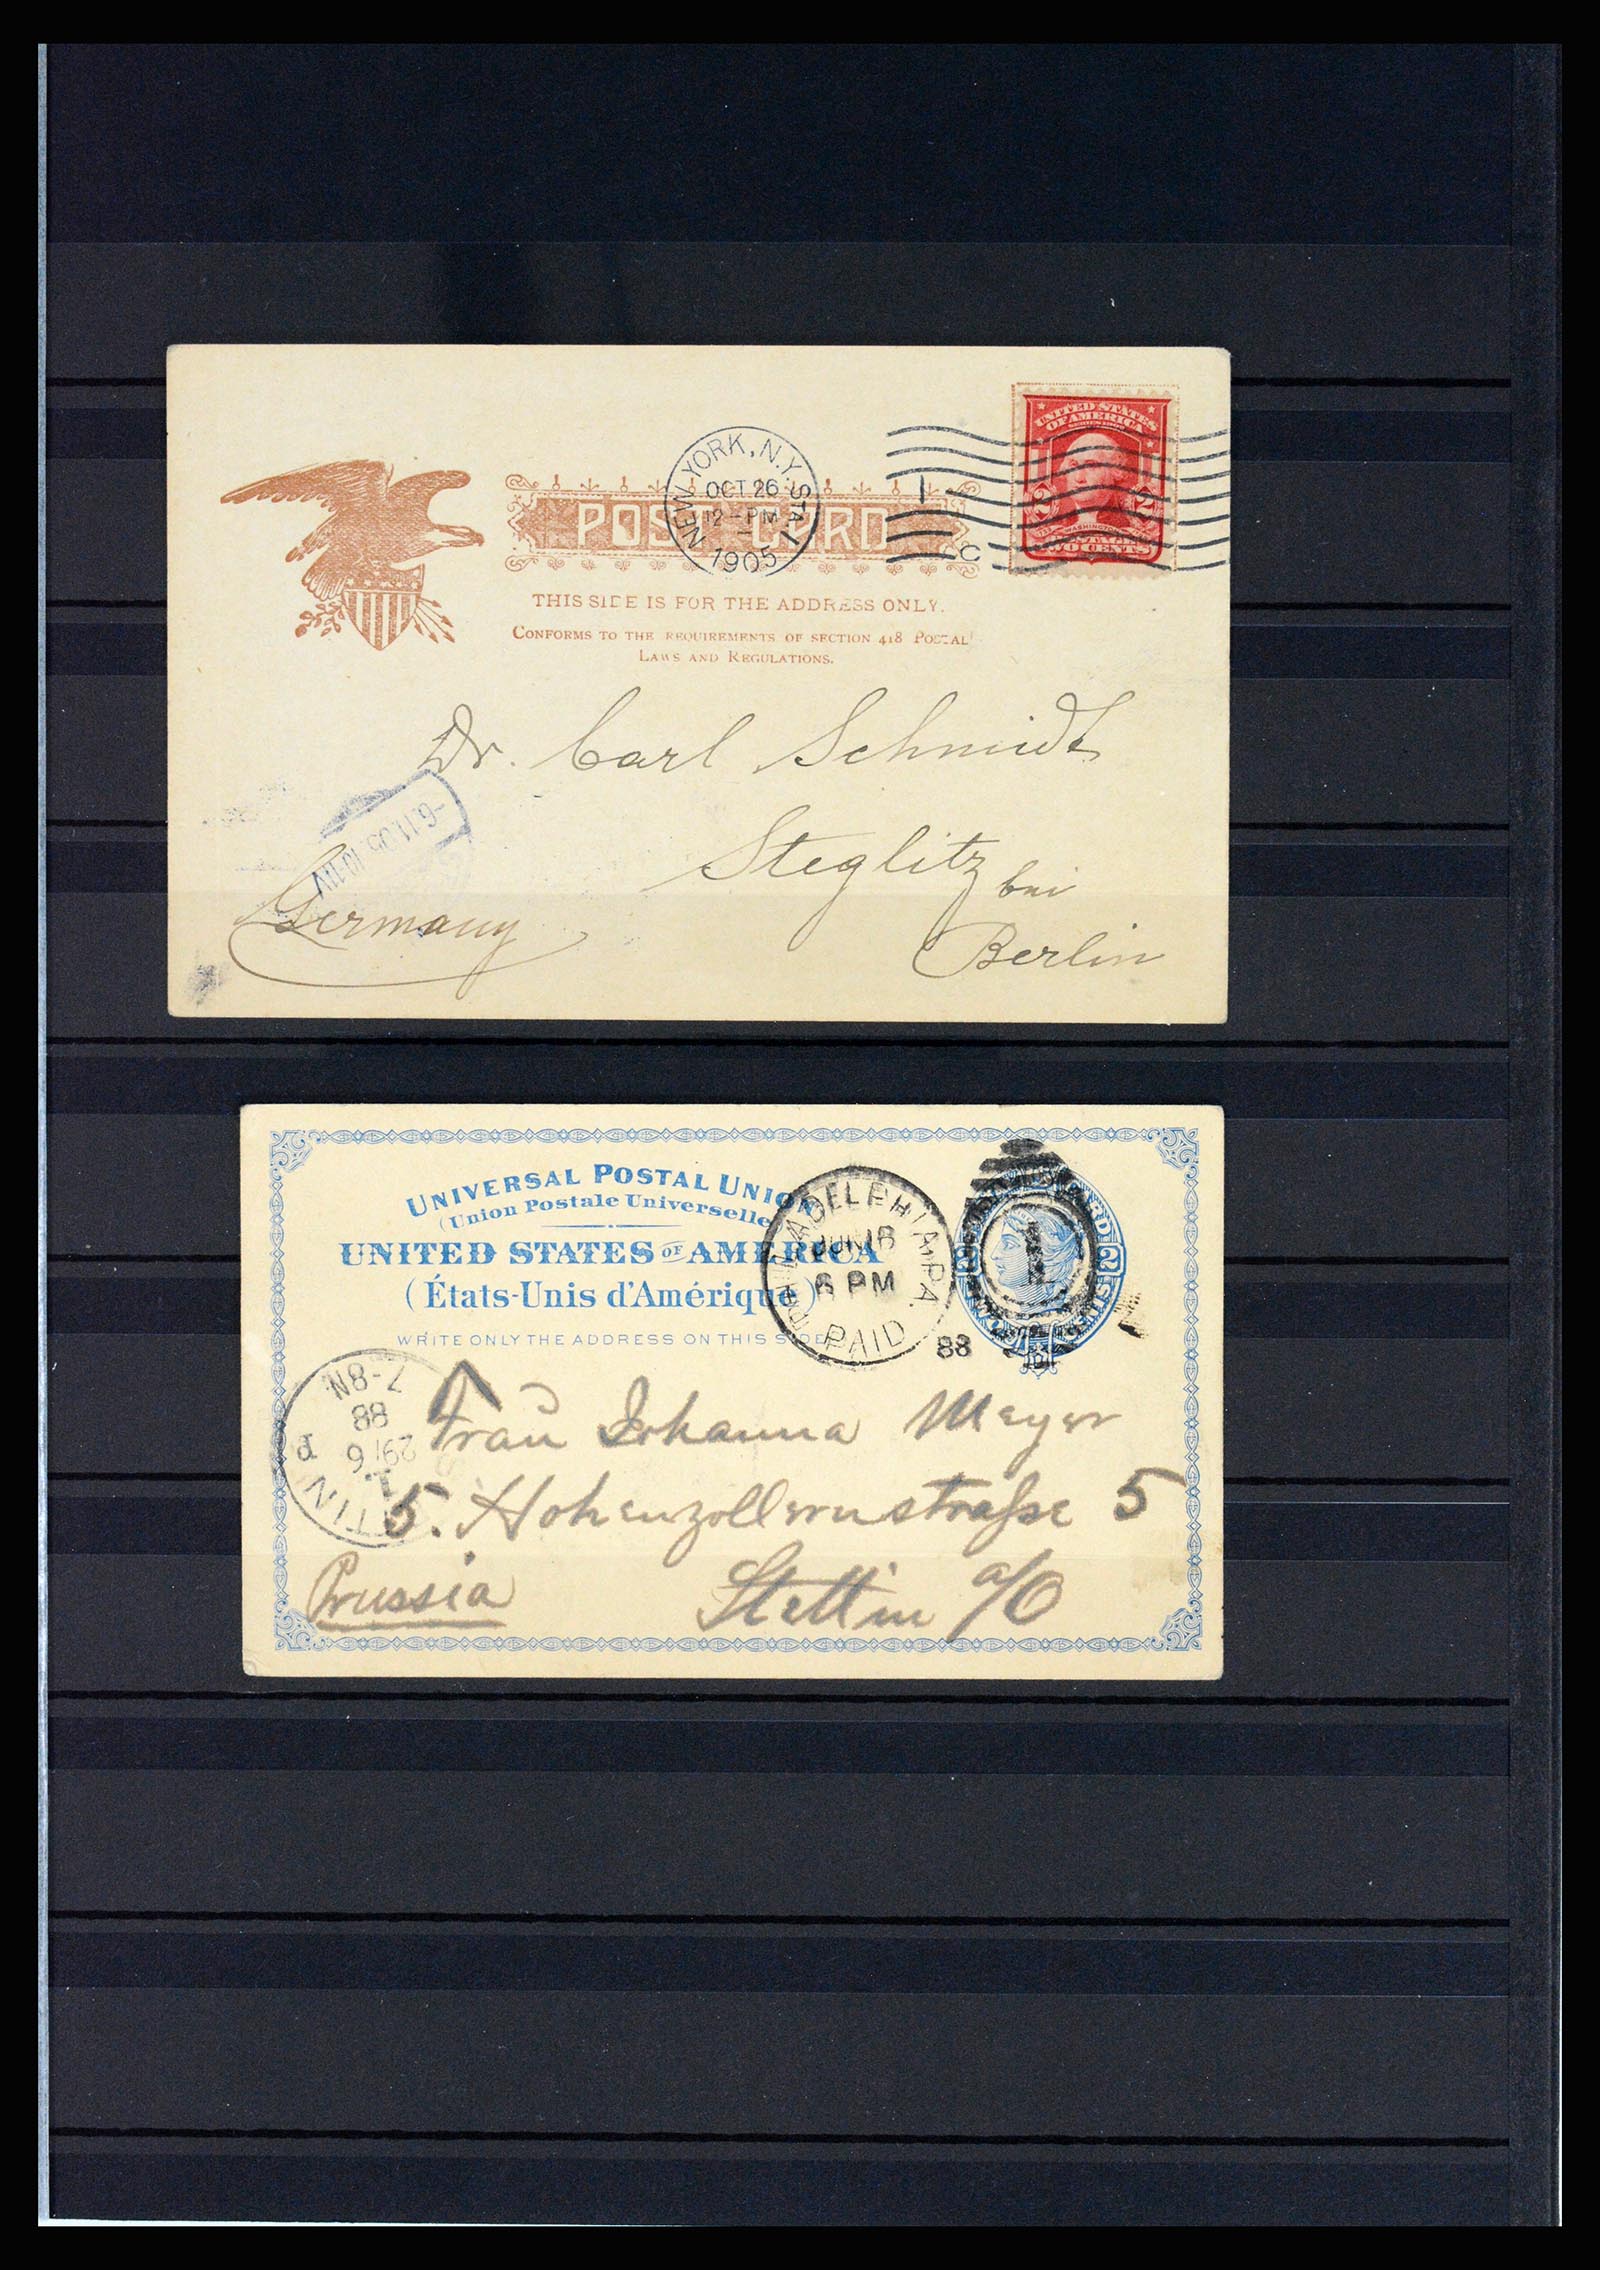 UNITED STATES
OF AMERICA
SERIES 1902
2 2
WASHINGTON
TWO CENTS
NEW YORK, N.Y. STA.
OCT 26
12-PM
1905
C
POST CARD
THIS SIDE IS FOR THE ADDRESS ONLY.
CONFORMS TO THE REQUIREMENTS OF SECTION 418 POSTAL
LAWS AND REGULATIONS.
Dr. Carl Schmidt
Steglitz
bei
Berlin
Germany
-6.11.05 10-11V
UNIVERSAL POSTAL UNION
(Union Postale Universelle)
UNITED STATES OF AMERICA
(États-Unis d'Amérique)
WRITE ONLY THE ADDRESS ON THIS SIDE
PHILADELPHIA, PA.
JUN 16
6 PM
PAID
88
1
Frau Johanna Meyer
5. Hohenzollernstraße 5
Stettin a/O
Prussia
7-8N
88
29/6